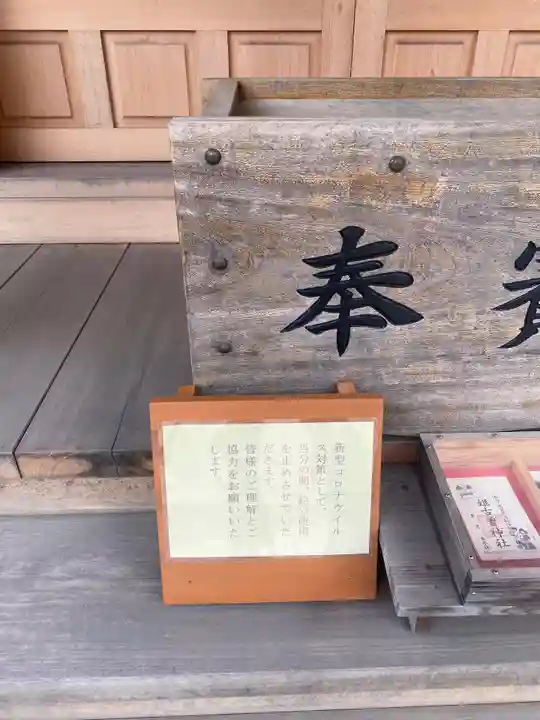 奉
新型コロナウイル
ス対策として、
当分の間、
を止めさせていた
だきます。
皆様のご理解とご
協力をお願いいた
します。
神社